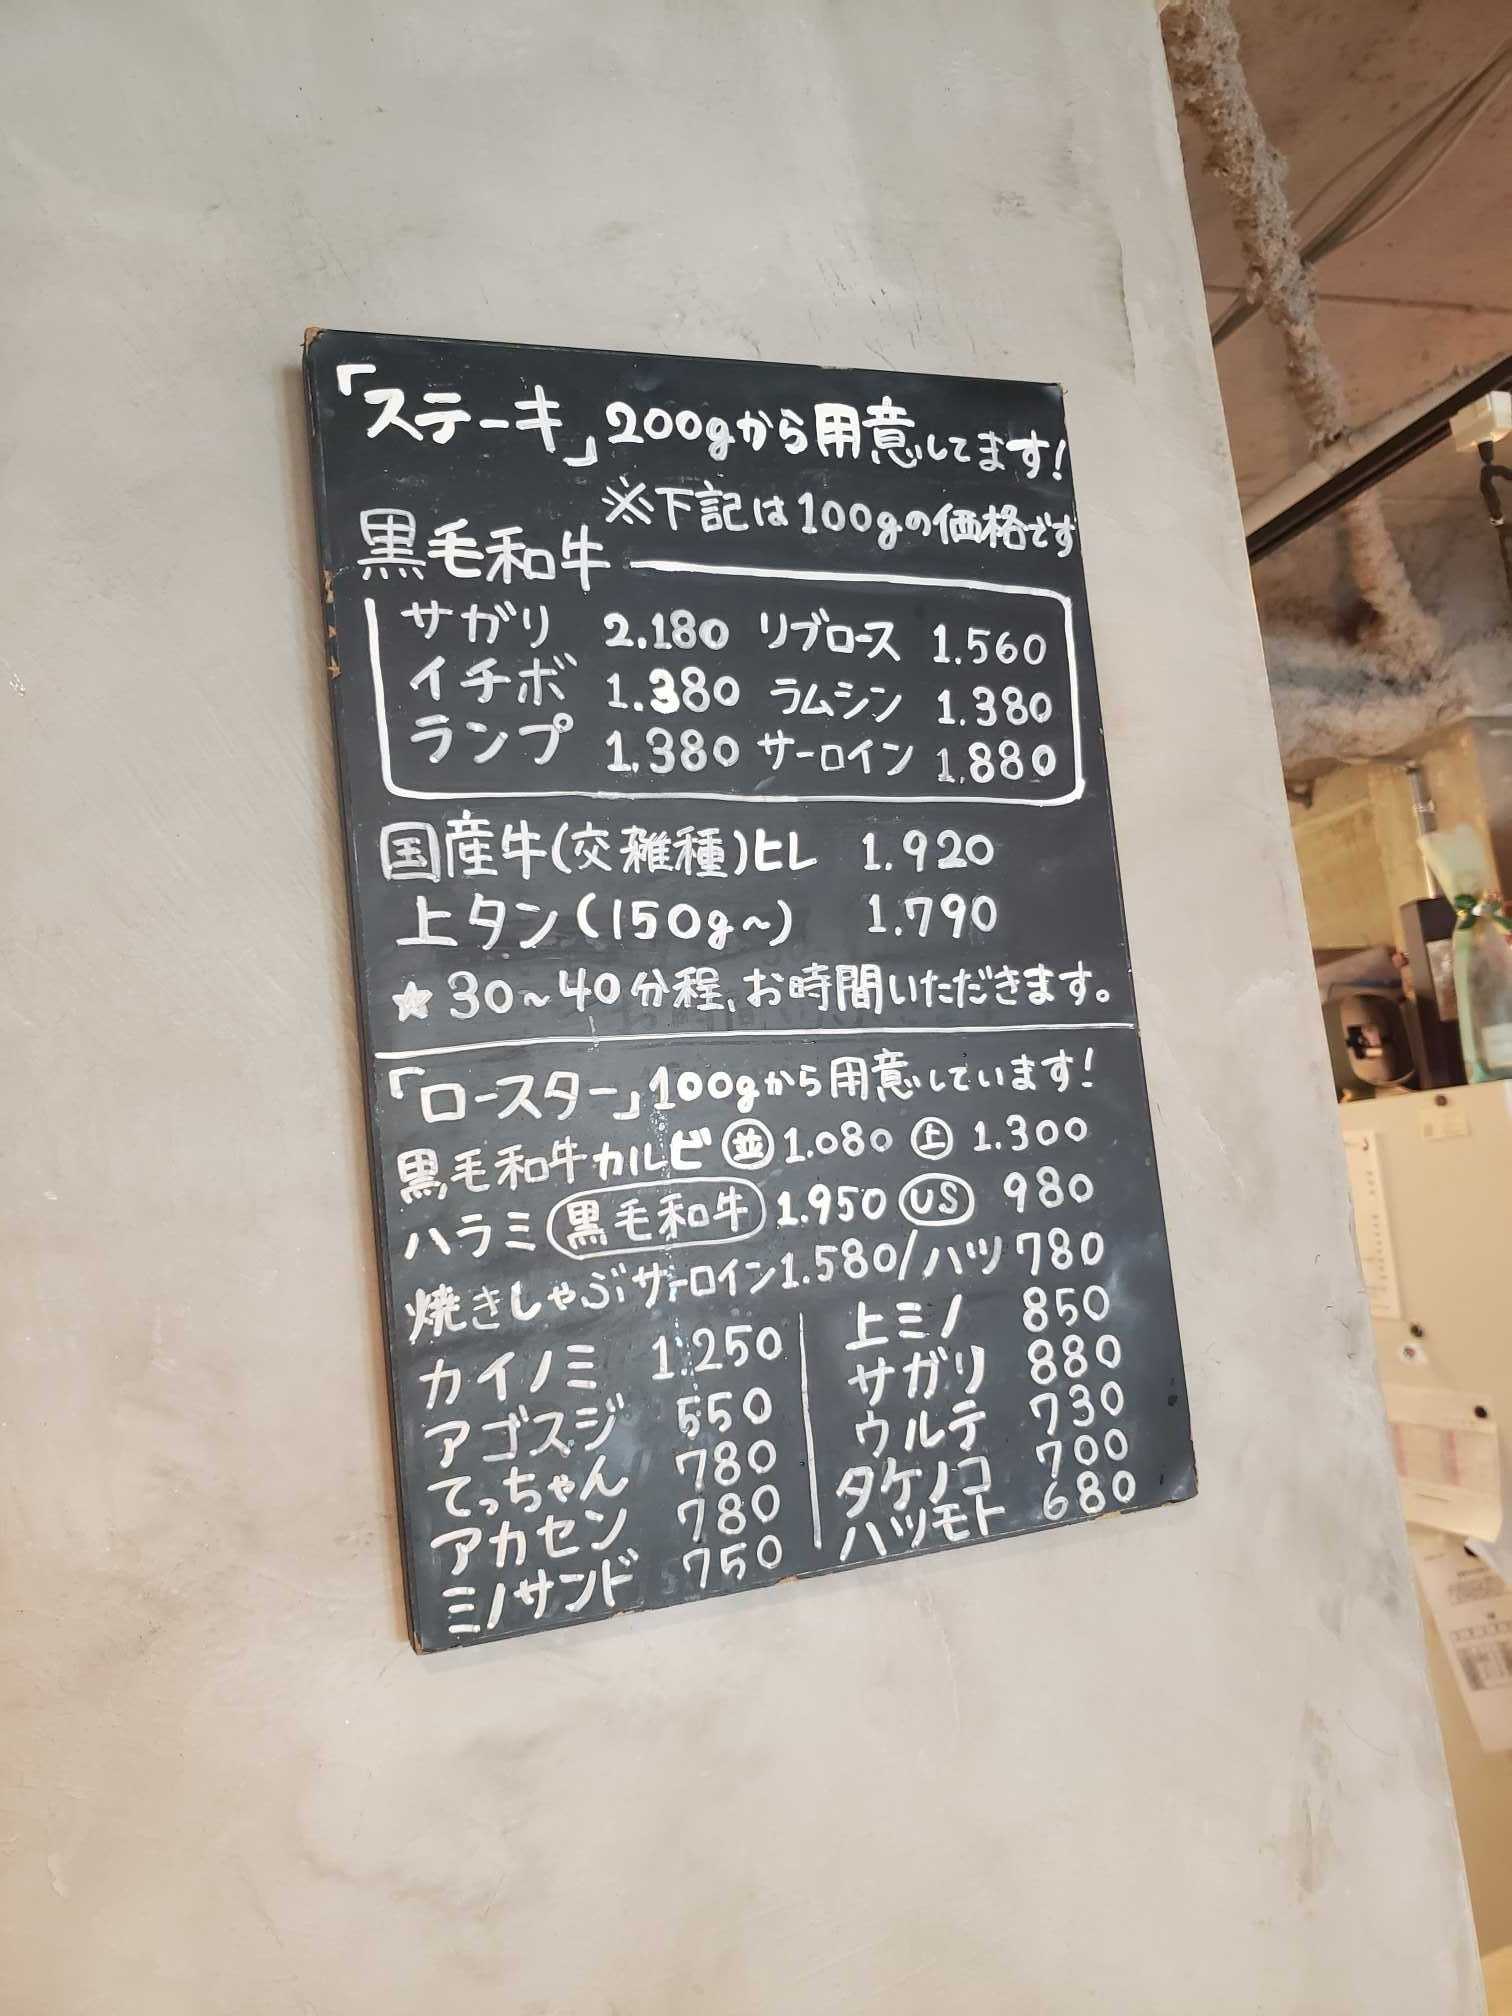 「ステーキ」200gから用意してます!
※下記は100gの価格です
黒毛和牛
サガリ 2.180 リブロース 1.560
イチボ 1.380 ラムシン 1.380
ランプ 1.380 サーロイン 1.880
国産牛(交雑種)ヒレ 1.920
上タン(150g〜) 1.790
★30〜40分程、お時間いただきます。
「ロースター」100gから用意しています!
黒毛和牛カルビ 並 1.080 上 1.300
ハラミ 黒毛和牛 1.950 US 980
焼きしゃぶサーロイン1.580/ハツ 780
カイノミ 1.250
アゴスジ 550
てっちゃん 780
アカセン 780
ミノサンド 750
上ミノ 850
サガリ 880
ウルテ 730
タケノコ 700
ハツモト 680